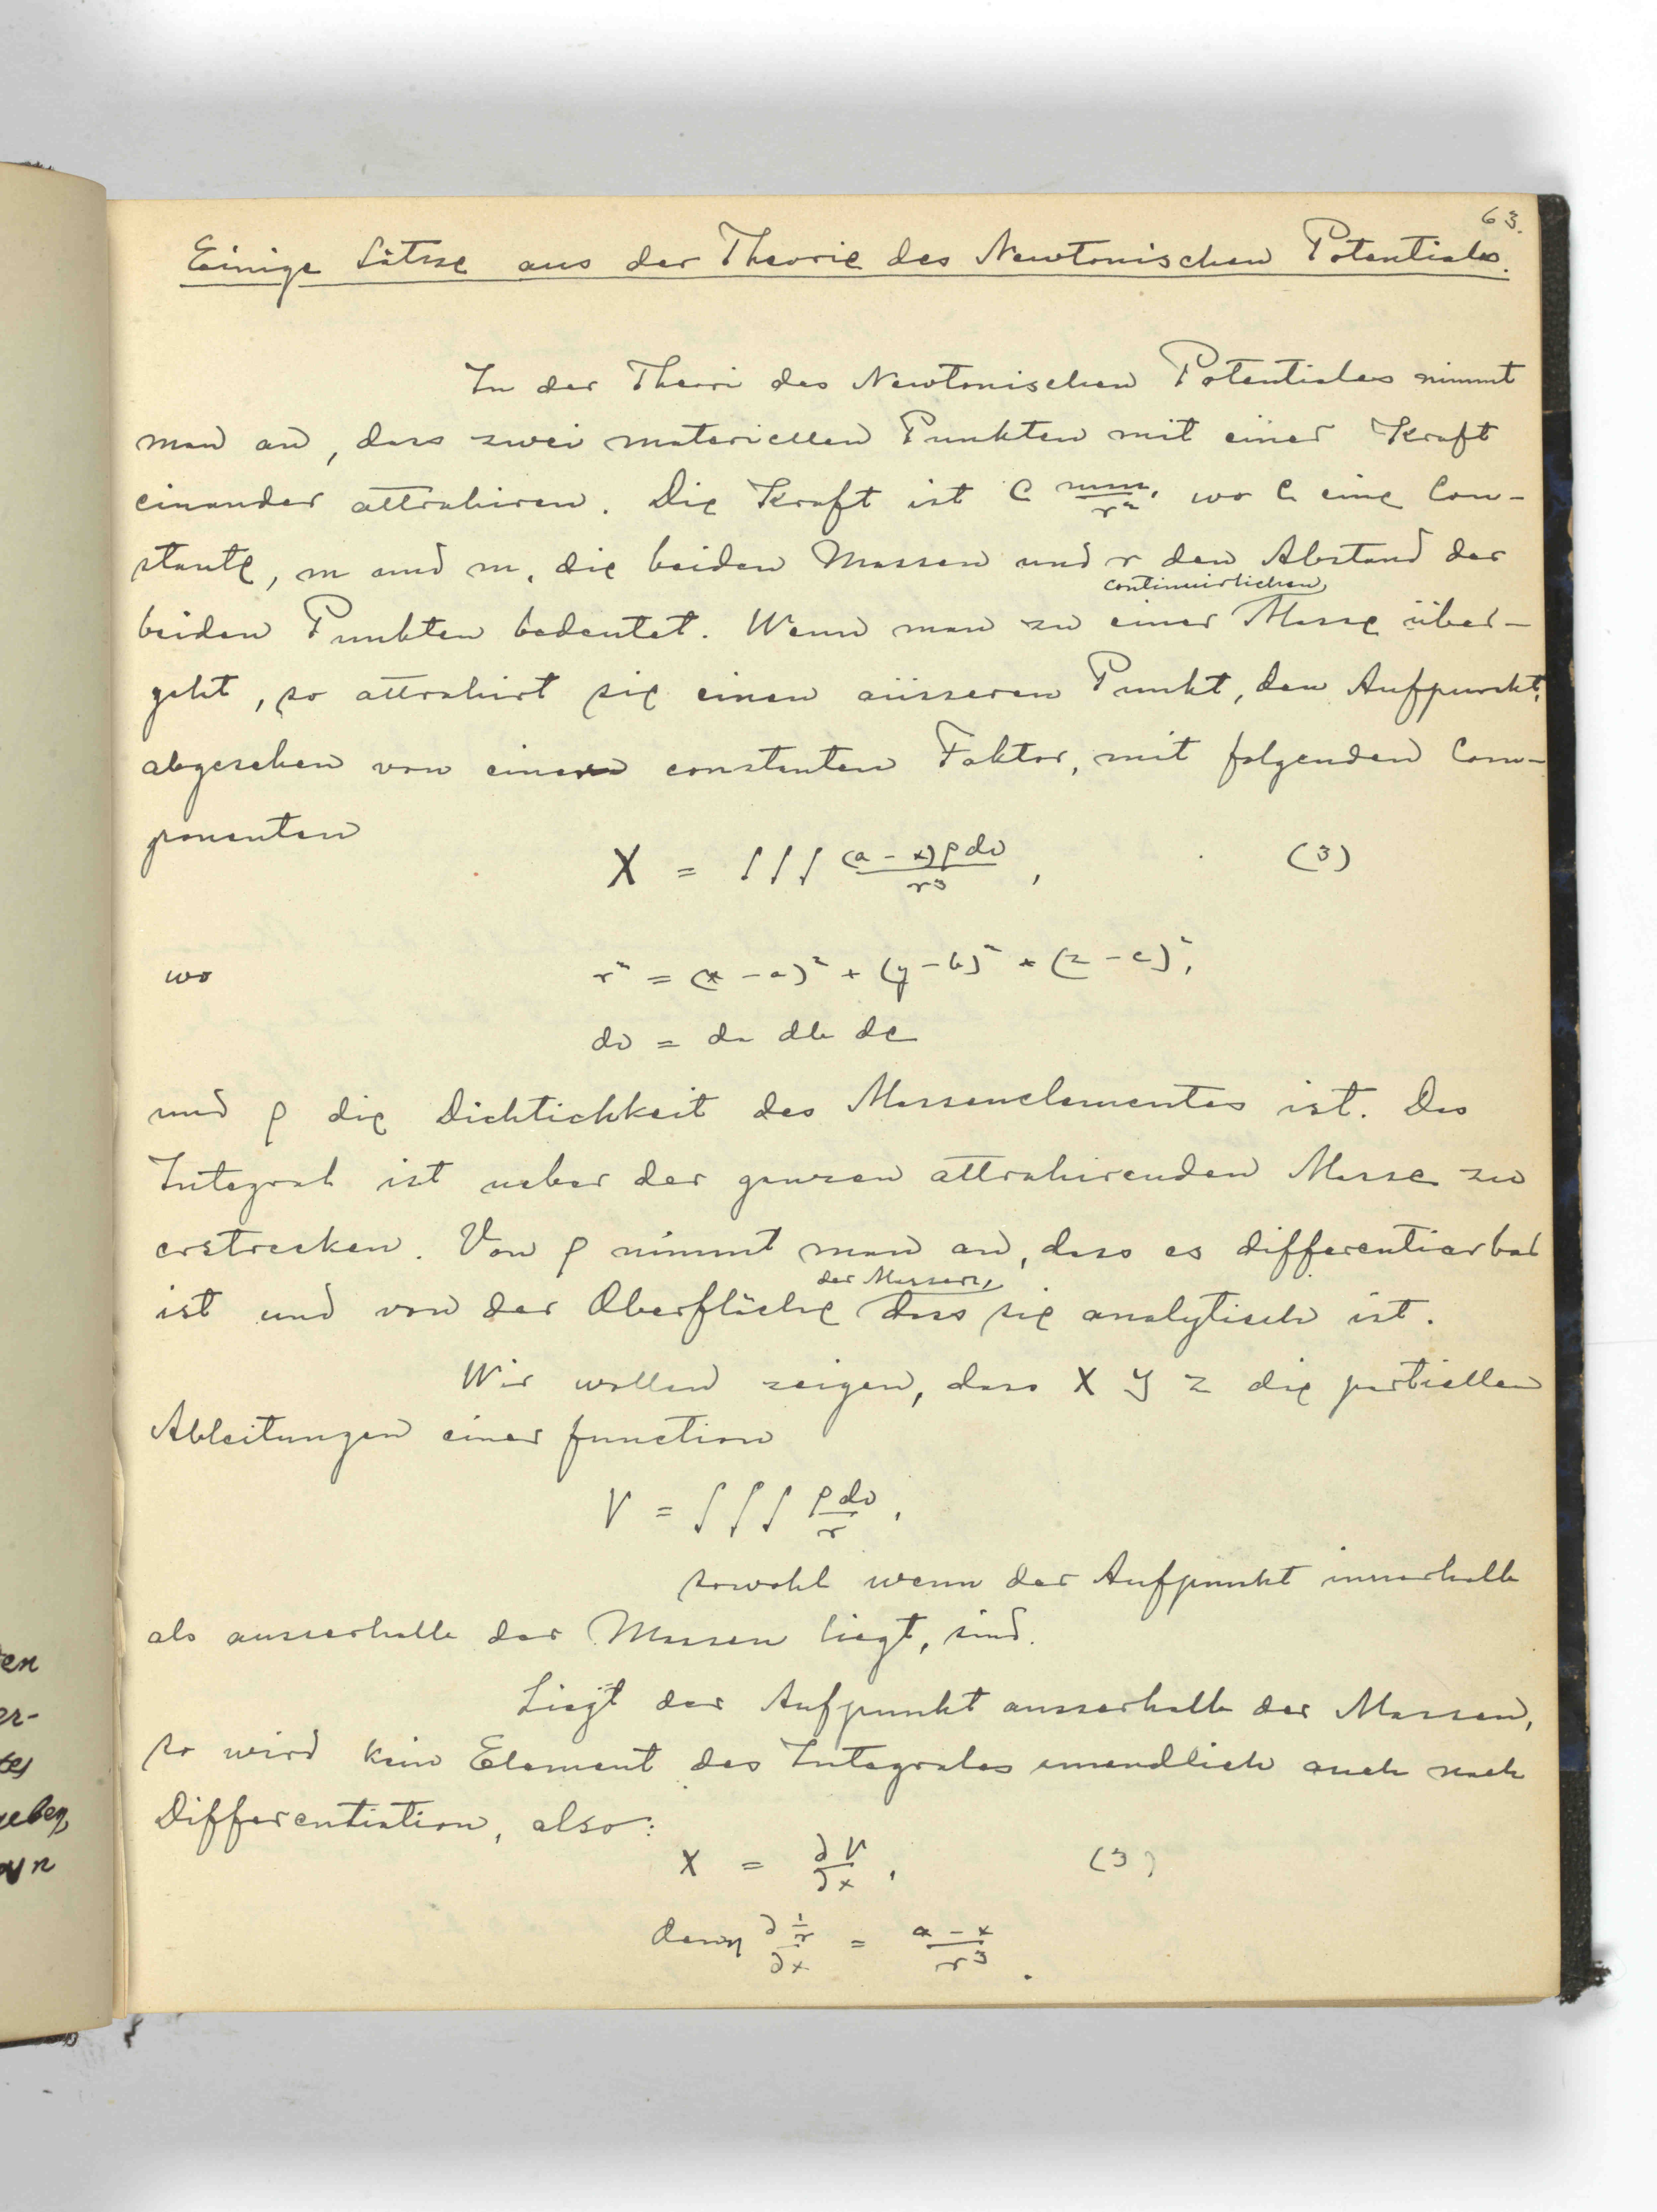 63.
Einige Sätze aus der Theorie des Newtonischen Potentiales.
In der Theori des Newtonischen Potentiales nimmt
man an, dass zwei materiellen Punkten mit einer Kraft
einander attrahiren. Die Kraft ist C mm₁/r², wo C eine Con-
stante, m und m₁ die beiden Massen und r den Abstand der
continuirlichen
beiden Punkten bedeutet. Wenn man zu einer Masse über-
geht, so attrahirt sie einen äüsseren Punkt, den Aufpunkt,
abgesehen von einem constanten Faktor, mit folgenden Com-
ponenten
X = ∫∫∫ (a - x)ρ dv / r³, (3)
wo r² = (x - a)² + (y - b)² + (z - c)²,
dv = da db dc
und ρ die Dichtichkeit des Massenelementes ist. Das
Integral ist ueber der ganzen attrahirenden Masse zu
erstrecken. Von ρ nimmt man an, dass es differentiarbar
der Massen,
ist und von der Oberfläche dass sie analytisch ist.
Wir wollen zeigen, dass X Y Z die partiellen
Ableitungen einer function
V = ∫∫∫ ρ dv / r,
sowohl wenn der Aufpunkt innerhalb
als ausserhalb der Massen liegt, sind.
Liegt der Aufpunkt ausserhalb der Massen,
so wird kein Element des Integrales unendlich auch nach
Differentiation, also:
X = ∂V/∂x, (3)
denn ∂ 1/r / ∂x = a - x / r³.
en
er-
tes
geben,